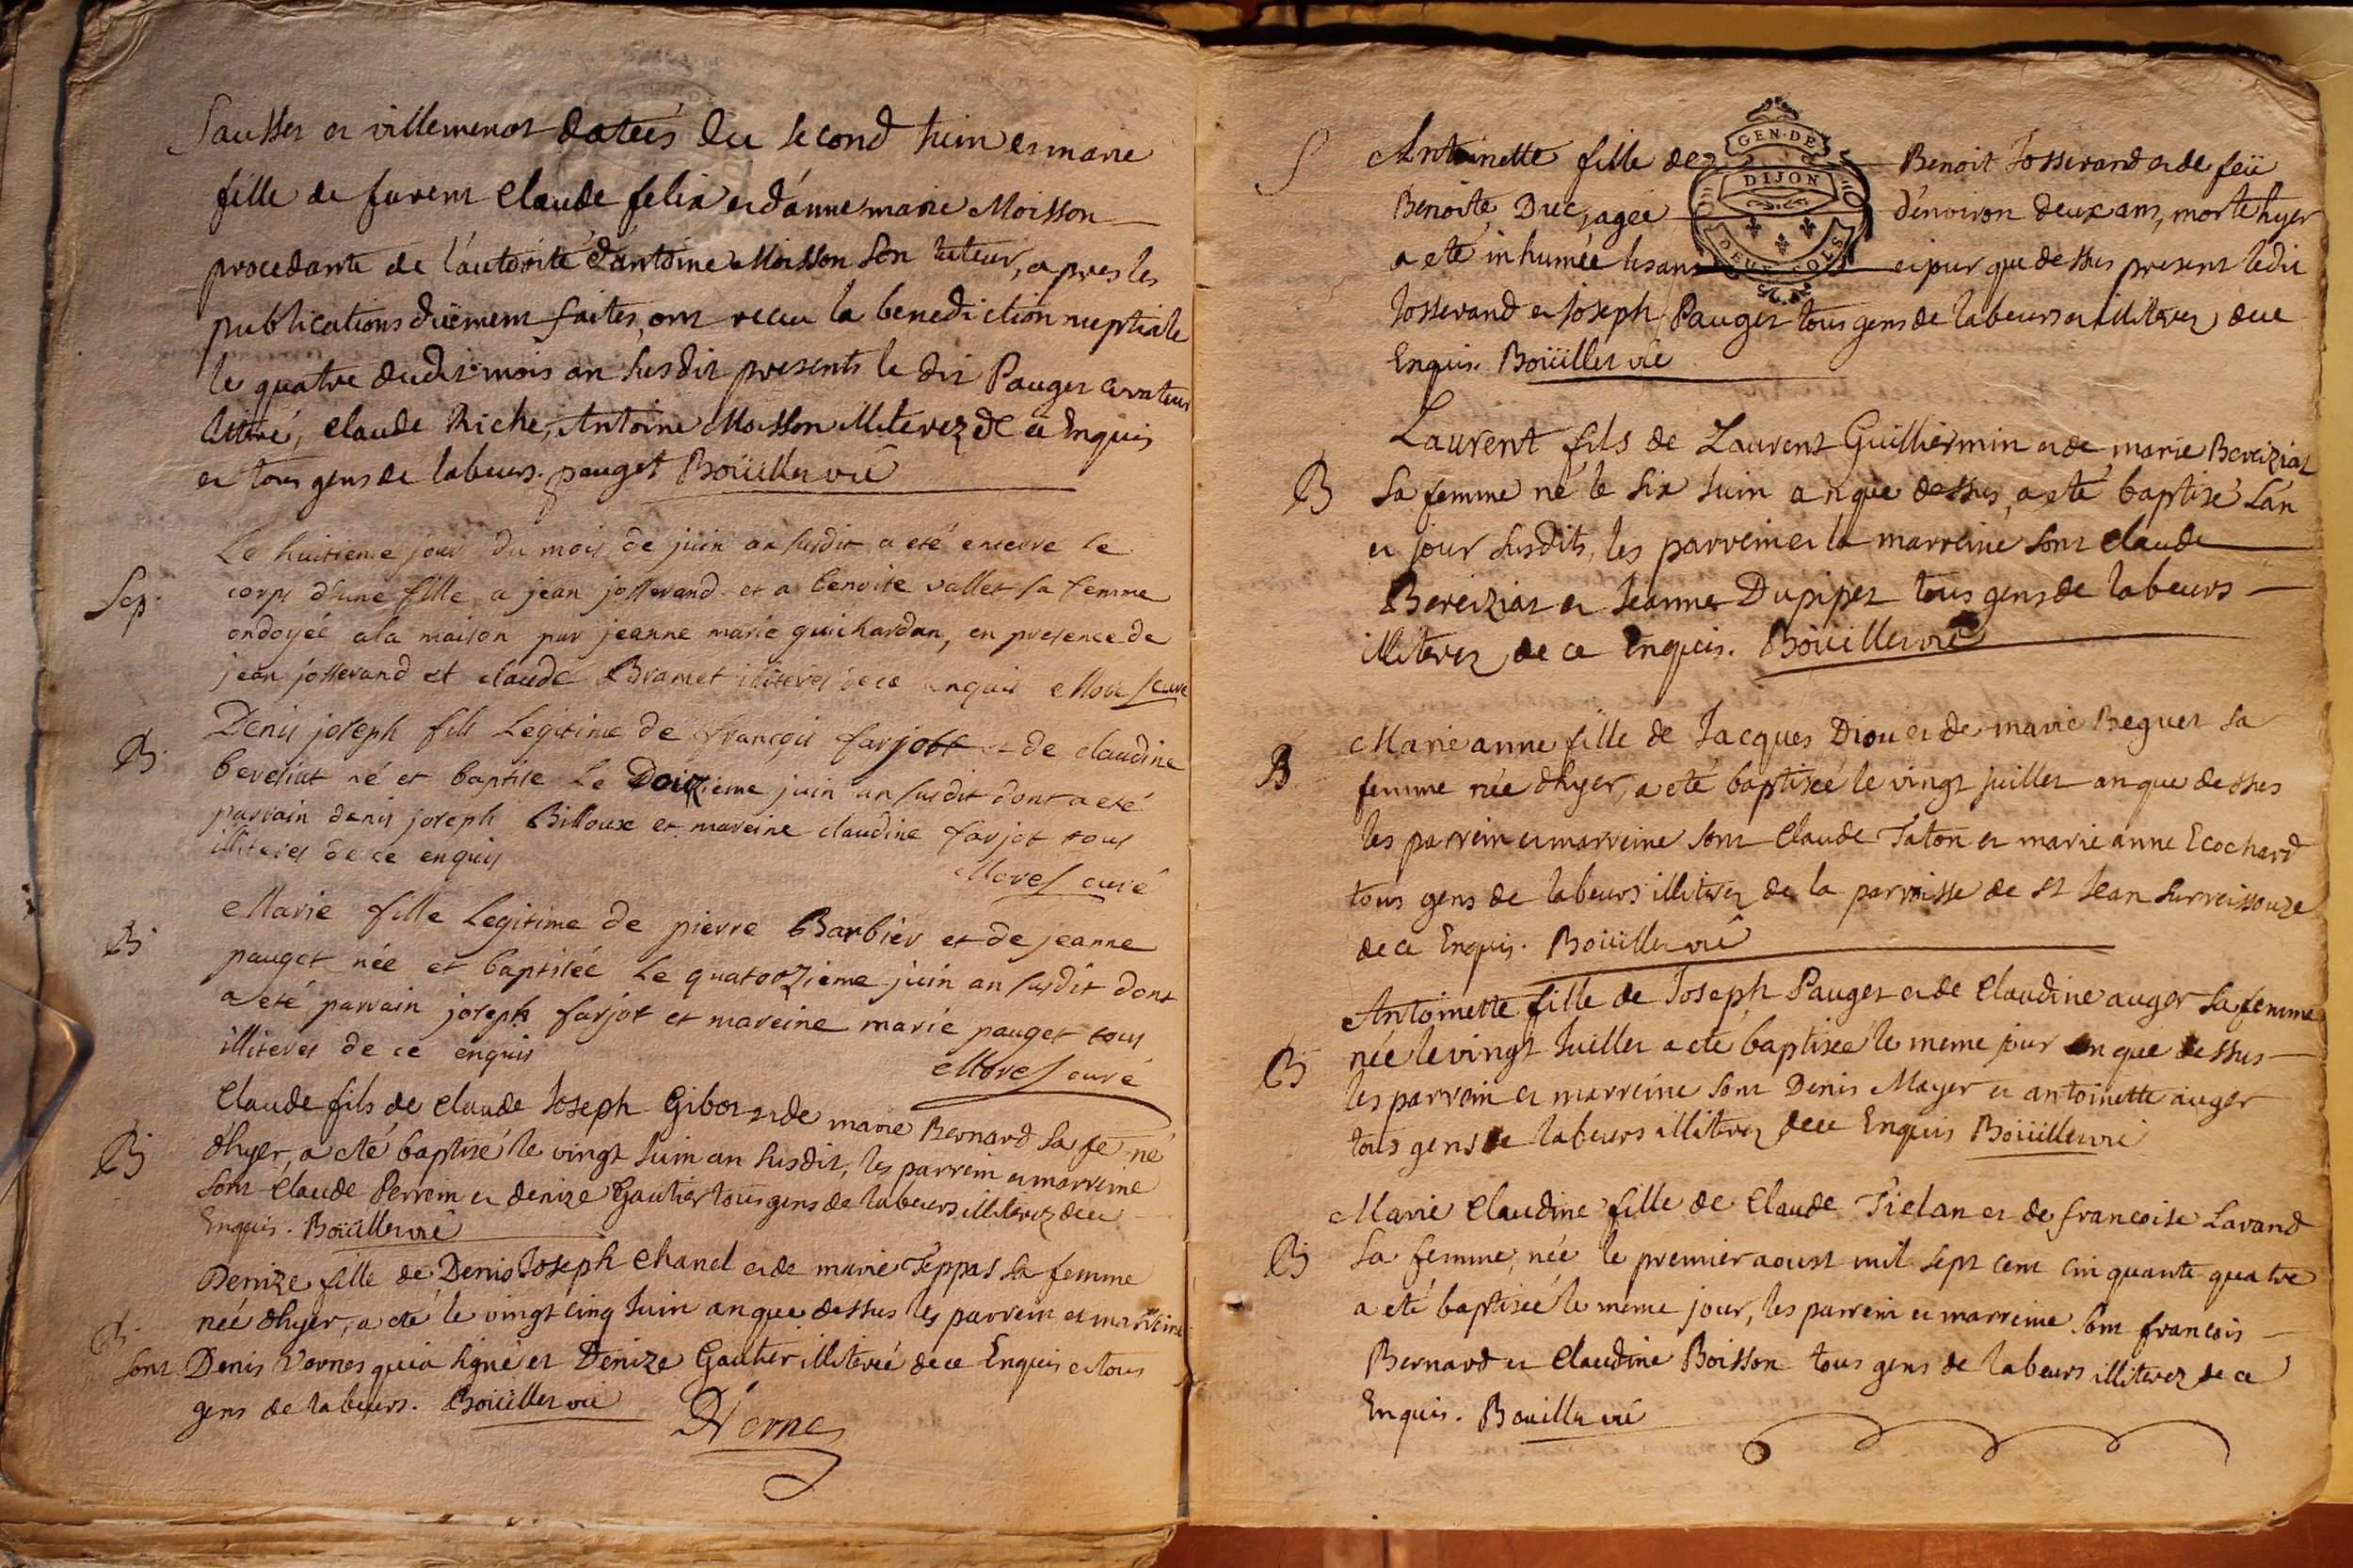 Sausset et villemenot datées du second Juin et marie
fille de furent Claude felix et d'anne marie Moisson
procedante de l'autorité d'antoine Moisson son tuteur, apres les
publications düement faites, ont recu la benediction nuptiale
le quatre dudit mois an susdit presents le dit Pauget curateur
Claude Riche, Antoine Moisson illiterez de ce Enquis
et tous gens de labeurs. pauget Boüiller vić
Le huitieme jour du mois de juin an susdit a eté enterre le
Sep. corps d'une fille a jean josserand et a benoite vallet sa femme
ondoyée a la maison par jeanne marie guichardan, en presence de
jean josserand et claude Bramet illiteres de ce enquis Morel curé
Denis joseph fils Legitime de françois farjott et de claudine
B. beresiat né et baptise le Doizieme juin an susdit dont a eté
parrain denis joseph Billoux et mareine claudine farjot tous
illiteres de ce enquis
Morel curé
Marie fille Legitime de pierre Barbier et de jeanne
B. pauget née et baptisée le quatorzieme juin an susdit dont
a eté parrain joseph farjot et mareine marie pauget tous
illiteres de ce enquis
Morel curé
Claude fils de Claude Joseph Gibot et de marie Bernard sa fe né
B d'hyer, a eté baptisé le vingt Juin an susdit, les parrein et marreine
sont Claude Perrein et denize Gautier tous gens de labeurs illiterez de ce
Enquis. Boüiller vić
Denize fille de Denis Joseph Chanel et de marie Teppas sa femme
B. née d'hyer, a eté le vingt cinq Juin an que dessus les parrein et marreine
sont Denis Vornes qui a signé et Denize Gautier illiterée de ce Enquis et tous
gens de labeurs. Boüiller vić
DVorne
GEN. DE
DIJON
DEUX SOLS
S Antoinette fille de Benoit Josserand et de feüe
Benoite Duc, agée d'environ deux ans, morte hyer
a eté inhumée les an et jour que dessus present ledit
Josserand et Joseph Pauget tous gens de labeurs et illiterez de ce
Enquis. Boüiller vić
Laurent fils de Laurent Guilliermin et de marie Bereiziat
B sa femme né le six Juin an que dessus, a eté baptisé L'an
et jour susdits, les parrein et la marreine sont Claude
Bereiziat et Jeanne Dupipet tous gens de labeurs
illiterez de ce Enquis. Boüiller vić
Marie anne fille de Jacques Diou et de marie Beguet sa
B femme née d'hyer, a eté baptisée le vingt juillet an que dessus
les parrein et marreine sont Claude Taton et marie anne Ecochard
tous gens de labeurs illiterez de la parroisse de St Jean sur reissouze
de ce Enquis. Boüiller vić
Antoinette fille de Joseph Pauget et de Claudine auger sa femme
B née le vingt Juillet a eté baptisée le meme jour an que dessus
les parrein et marreine sont Denis Mayer et antoinette auger
tous gens de labeurs illiterez de ce Enquis Boüiller vić
Marie Claudine fille de Claude Tielan et de francoise Lavand
B sa femme, née le premier aoust mil sept cent cinquante quatre
a eté baptisée le meme jour, les parrein et marreine sont francois
Bernard et Claudine Boisson tous gens de labeurs illiterez de ce
Enquis. Bouiller vić